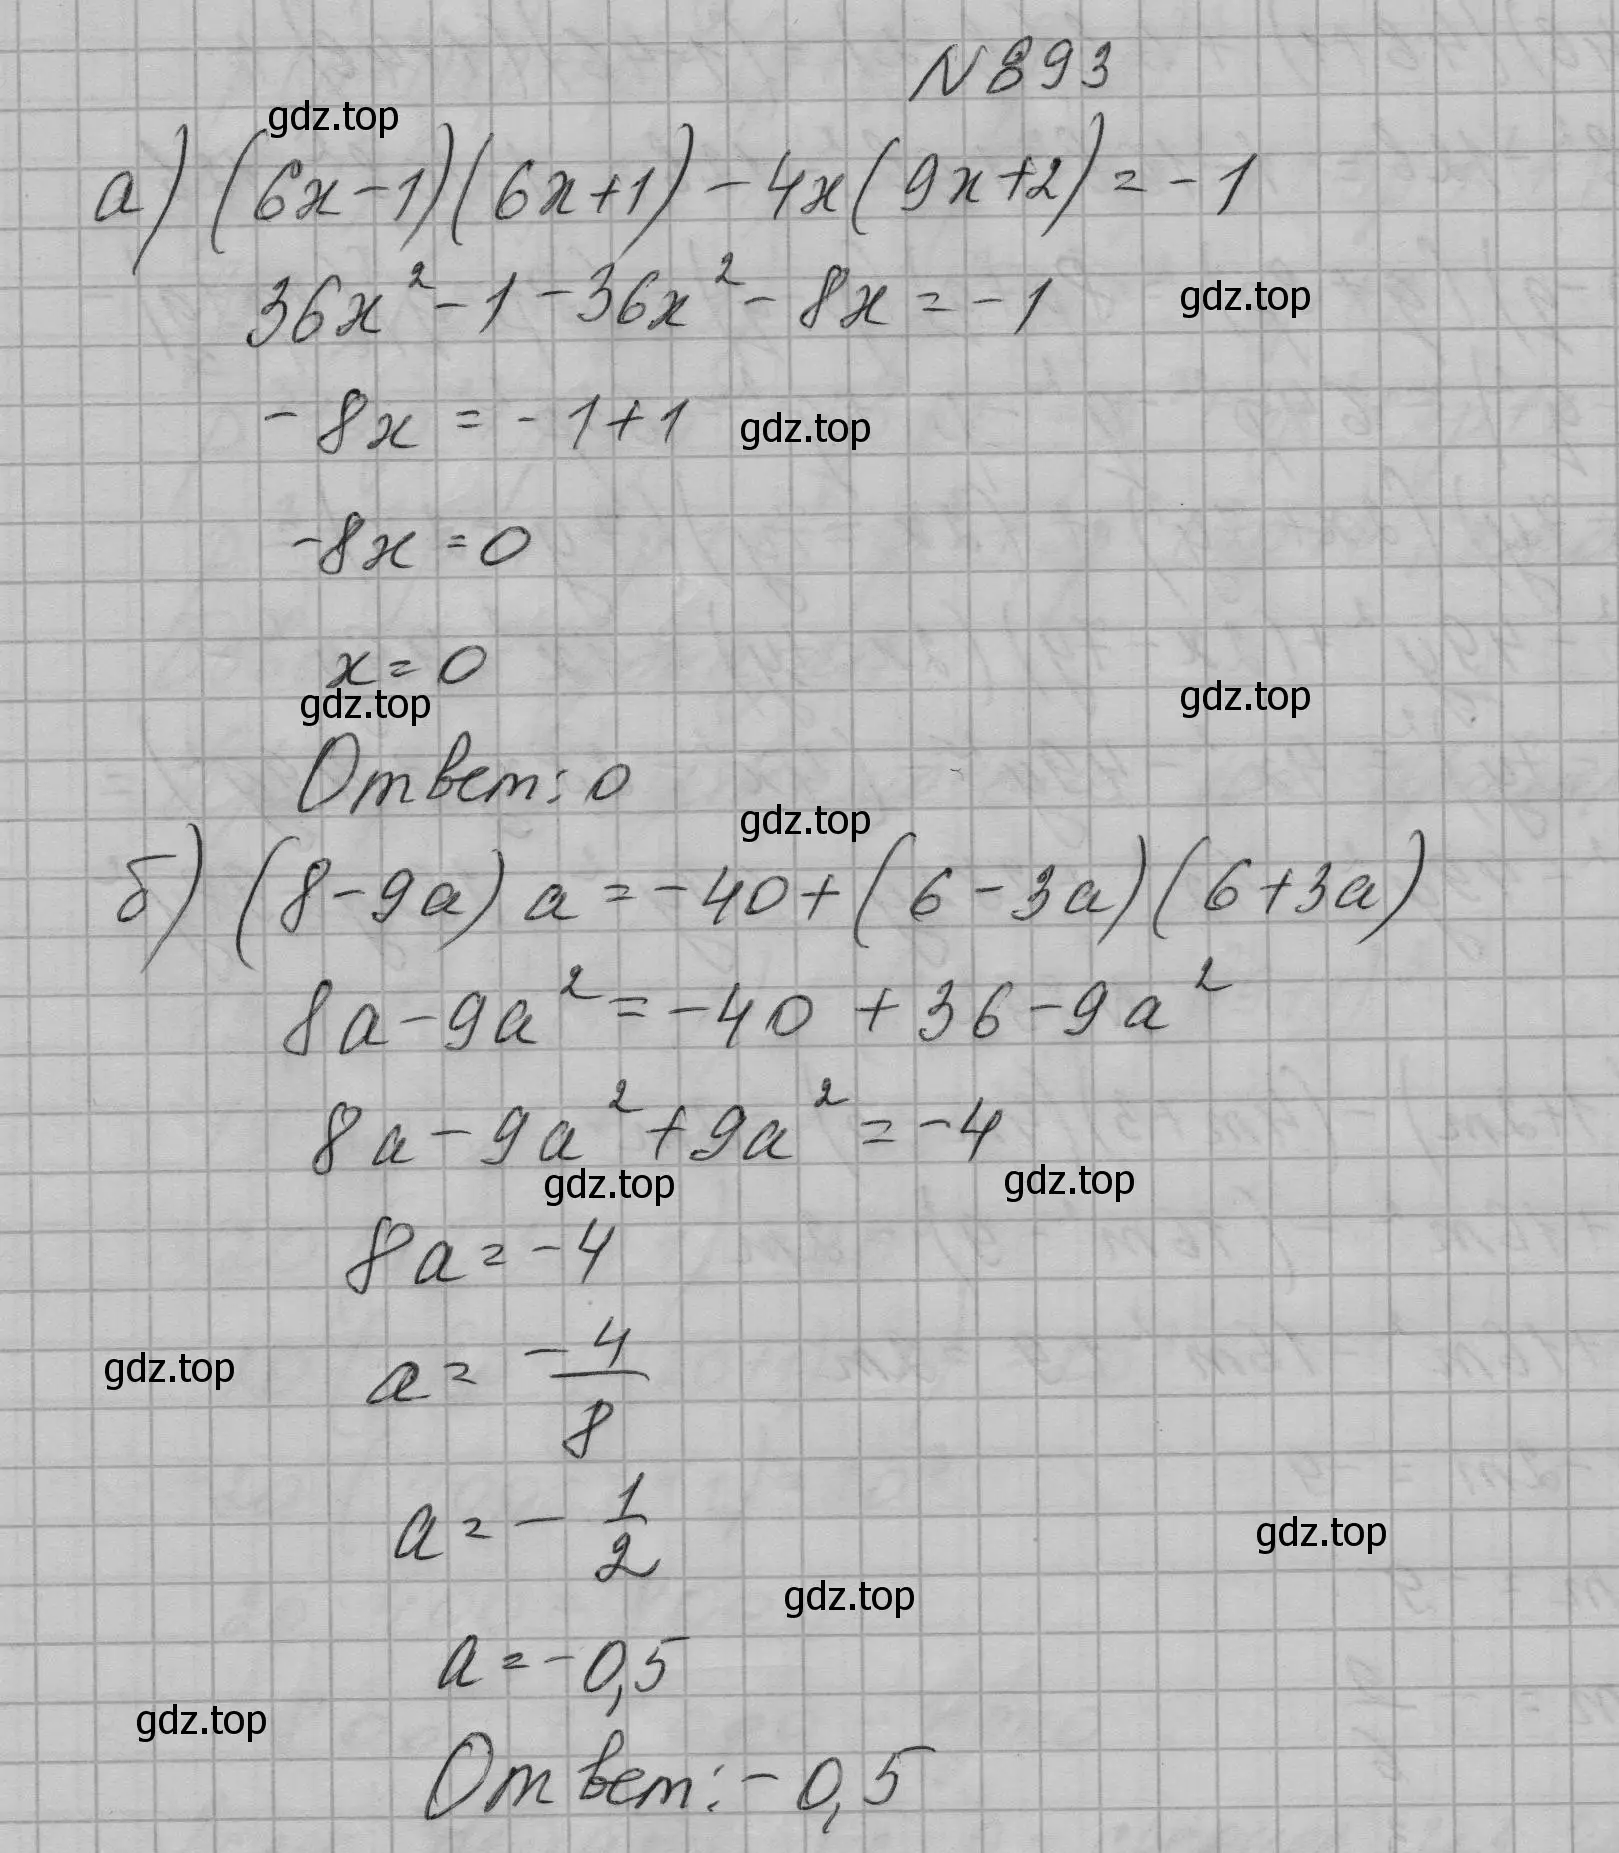 N 893
gdz.top
а) (6x-1)(6x+1)-4x(9x+2)=-1
36x²-1-36x²-8x=-1
gdz.top
-8x=-1+1
gdz.top
-8x=0
x=0
gdz.top
gdz.top
Ответ: 0
gdz.top
б) (8-9a)a=-40+(6-3a)(6+3a)
8a-9a²=-40+36-9a²
8a-9a²+9a²=-4
gdz.top
gdz.top
8a=-4
gdz.top
a=-4/8
a=-1/2
gdz.top
gdz.top
a=-0,5
gdz.top
Ответ: -0,5